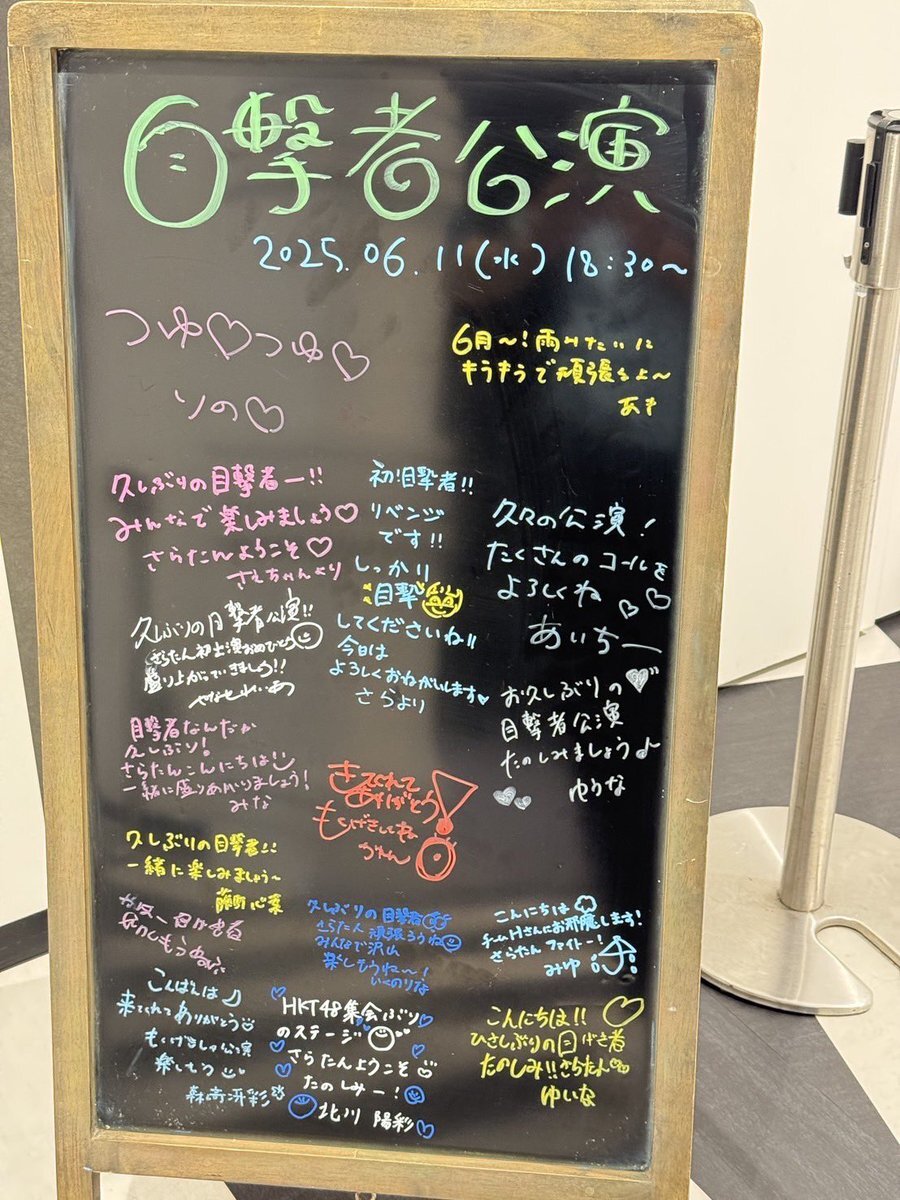 目撃者公演
2025.06.11(水) 18:30〜
つゆ♡つゆ♡
りの♡
6月〜!雨みたいに
キラキラで頑張るよ〜
あき
久しぶりの目撃者ー!!
みんなで楽しみましょう♡
さらたんようこそ♡
さえちゃんより
初!目撃者!!
リベンジ
です!!
しっかり
目撃
してくださいね!!
今日は
よろしくおねがいします♥
さらより
久々の公演!
たくさんのコールを
よろしくね♡♡
あいちー
久しぶりの目撃者公演!!
さらたん初出演おめでとう
盛り上がっていきましょう!!
お久しぶりの
目撃者公演
たのしみましょう♪
ゆりな
目撃者なんだか
久しぶり!
さらたんこんにちは
一緒に盛りあがりましょう!
みな
きてくれて
ありがとう
もくげきしてね
かれん
久しぶりの目撃者!!
一緒に楽しみましょう〜
心菜
久しぶりの目撃者
さらたん頑張ろうね
みんなで沢山
楽しもうね〜!
いぐのりな
こんにちは
チームHさんにお邪魔します!
さらたんファイトー!
みゆ
こんばんは
来てくれてありがとう
もくげきしゃ公演
楽しもう
森﨑冴彩
HKT48集会ぶり
のステージ
さらたんようこそ
たのしみー!
北川 陽彩
こんにちは!!
ひさしぶりの目げき者
たのしみ!!さらたん
ゆいな